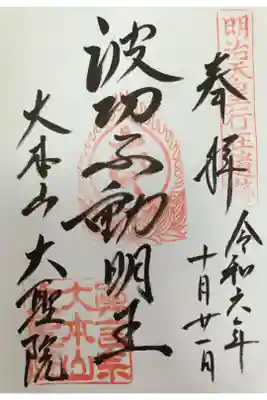 明治天皇行在諸跡
奉拝
令和六年
十月廿一日
波切不動明王
大本山大聖院
真言宗
大本山